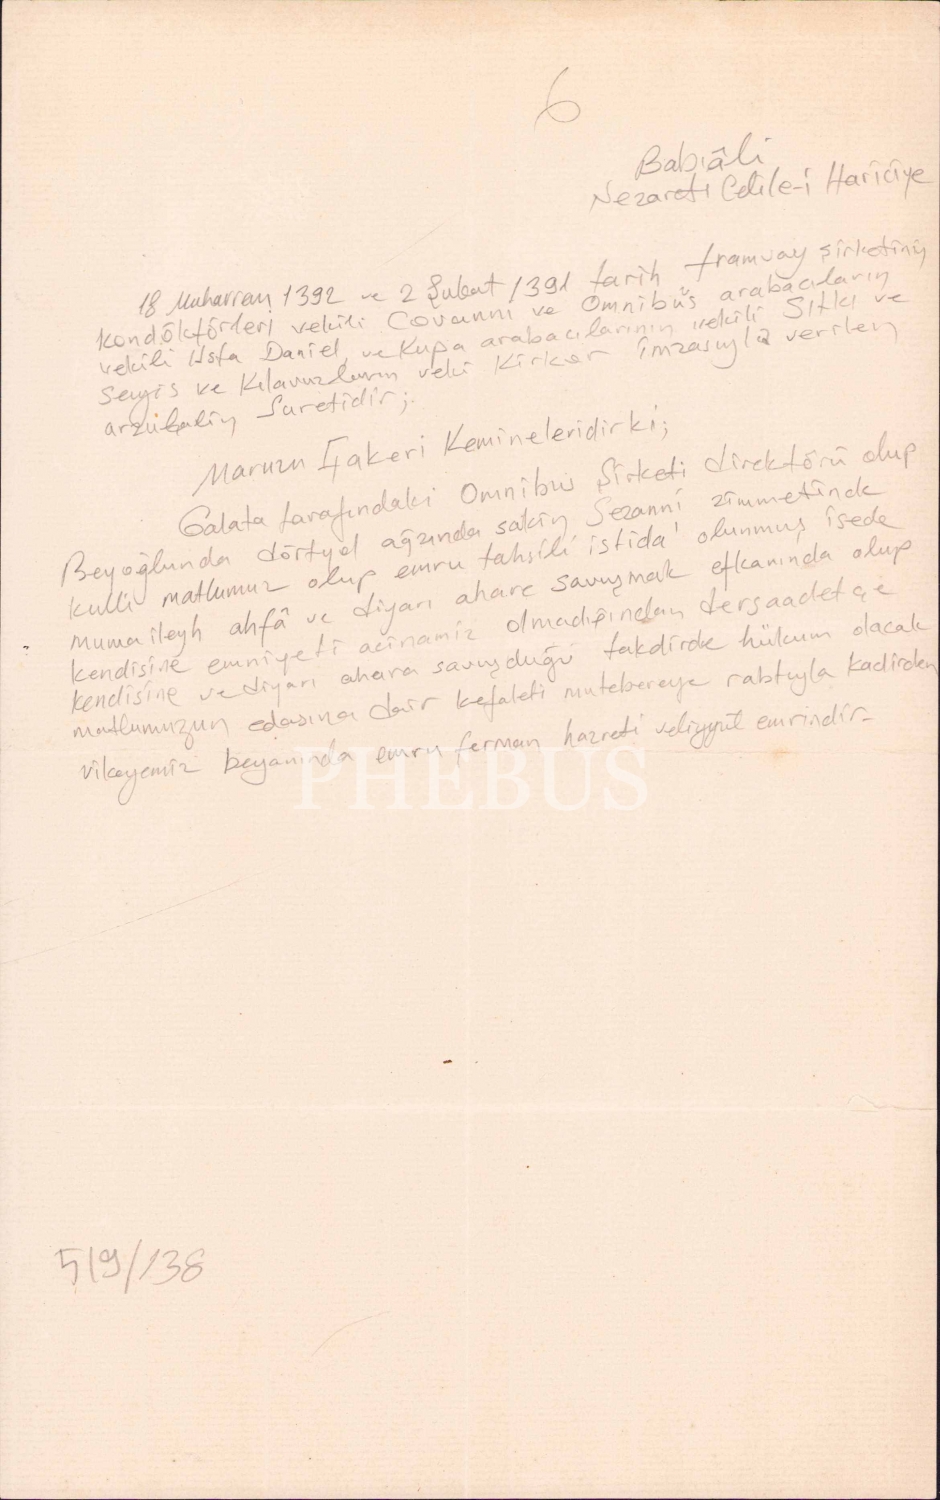 6
Babıâli
Nezareti Celile-i Hariciye
18 Muharrem 1392 ve 2 Şubat 1391 tarih tramvay şirketinin
kondöktörleri vekili Covanni ve Omnibüs arabacıların
vekili Usta Daniel, ve Kupa arabacılarının vekili Sıtkı ve
Seyis ve Kılavuzların veki Kirkor imzasıyla verilen
arzuhalin Suretidir;
Maruzu Çakeri Kemineleridirki;
Galata tarafındaki Omnibüs Şirketi direktörü olup
Beyoğlunda dörtyol ağzında sakin Sezanni zimmetinde
kulli matlumuz olup emru tahsili istida olunmuş isede
mumaileyh ahfâ ve diyarı ahare savuşmak efkanında olup
kendisine emniyeti acinamiz olmadığından dersaadetçe
kendisine ve diyarı ahara savuşduğu takdirde hükum olacak
matlumuzun edasına dair kefaleti mutebereye rabtıyla kadirden
vikayemiz beyanında emru ferman hazreti veliyyül emrindir-
PHEBUS
519/138